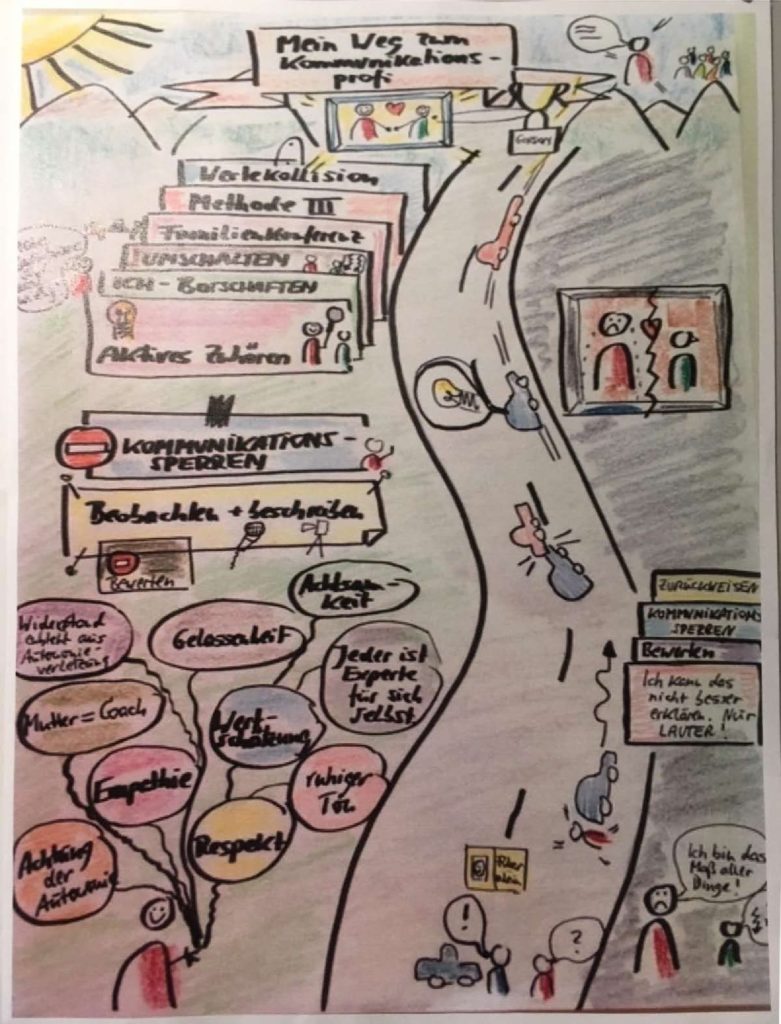 Mein Weg zum
Kommunikations-
profi
Gordon
Wertekollision
Methode III
Familienkonferenz
UMSCHALTEN
ICH-BOTSCHAFTEN
Aktives Zuhören
KOMMUNIKATIONS-
SPERREN
Beobachten + beschreiben
Bewerten
Achtsam-
keit
Widerstand
entsteht aus
Autonomie-
verletzung
Gelassenheit
Jeder ist
Experte
für sich
selbst
Mutter = Coach
Wert-
schätzung
Empathie
ruhiger
Ton
Respekt
Achtung
der
Autonomie
ZURÜCKWEISEN
KOMMUNIKATIONS
SPERREN
Bewerten
Ich kann das
nicht besser
erklären. Nur
LAUTER!
Ich bin das
Maß aller
Dinge!
!
?